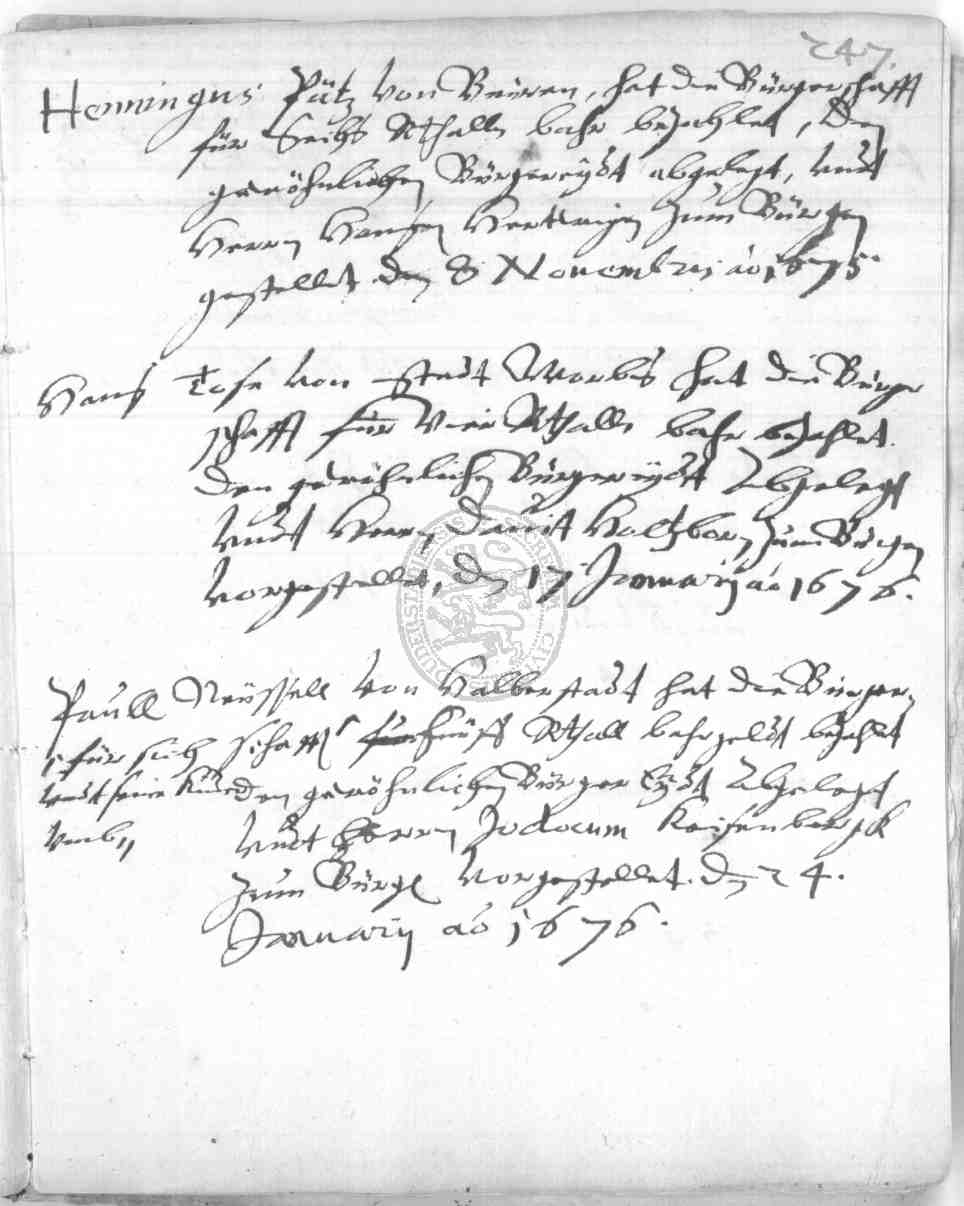 247.
Henningus Pütz von Beüren, hat die Bürgerschafft
für Sechs Rthalle bahr bezahlet, den
gewöhnlichen Bürgereydt abgelegt, undt
Herrn Hansen Hertwigen zum Bürgen
gestellet den 8 Novembris ao 1675
Hans Tose von Stadt Worbis hat die Bürger
schafft für Vier Rthalle bahr bezahlet.
den gewöhnlichen Bürgereydt abgelegt
undt Herrn Davit Holtzborn zum Bürgen
vorgestellet, den 17 Januarij ao 1676.
Paull Neüssell von Halberstadt hat die Bürger-
schafft fünff Rthall bahr geldt bezahlt
für sich
undt seine
den gewöhnlichen Bürger Eydt abgelegt
undt Herrn Jodocum Keisenbergk
zum Bürgen vorgestellet. den 24.
Januarij ao 1676.
DUDERSTADIENSIS CIVI